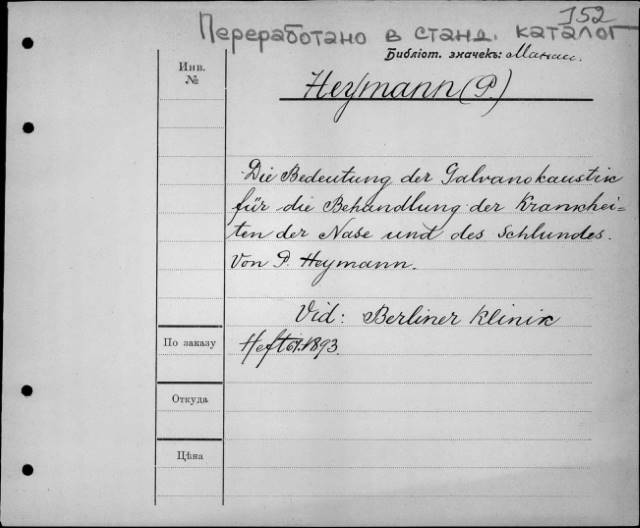 152
Переработано в станд. каталог
Библіот. значекъ:
Инв.
№
Heymann (P.)
Die Bedeutung der Galvanokaustik
für die Behandlung der Krankhei=
ten der Nase und des Schlundes.
Von P. Heymann.
Vid: Berliner Klinik
По заказу
Heft 61. 1893.
Откуда
Цѣна